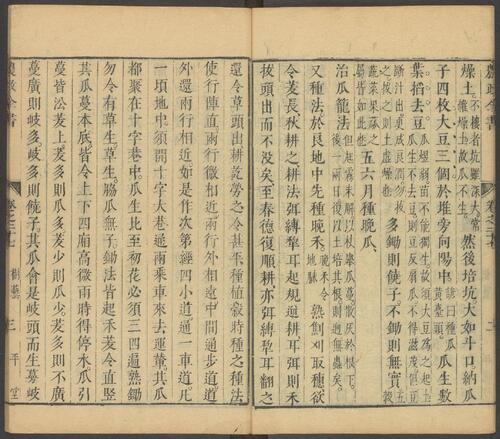 燥土不接者坑雖深大常雜燥土故瓜不生然後培坑大如斗口納瓜
子四枚大豆三個於堆旁向陽中諺曰種瓜黃臺頭瓜生數
葉掐去豆瓜性弱苗不能獨生故須大豆為之起土瓜生不去豆則豆反扇瓜不得滋茂但豆
斷汁出更成良潤勿拔之拔之則土虛燥也多鋤則饒子不鋤則無實五穀
蔬菜果蓏之屬皆如此也五六月種晚瓜
治瓜籠法旦起露未解以杖舉瓜蔓散灰於根下後一兩日復以土培其根則迥無蟲矣
又種法於良地中先種晚禾晚禾令地膩熟劁刈取穗欲
令茇長秋耕之耕法弭縛犁耳起規逆耕耳弭則禾
拔頭出而不没矣至春復順耕亦弭縛犁耳翻之
還令草頭出耕訖勞之令甚平種植穀時種之種法
使行陣直兩行微相近兩行外相遠中間通步道道
外還兩行相近如是作次第經四小道通一車道凡
一頃地中須開十字大巷通兩乘車來去運輦其瓜
都聚在十字巷中瓜生比至初花必須三四遍熟鋤
勿令有草生草生脇瓜無子鋤法皆起禾茇令直豎
其瓜蔓本底皆令上下四廂高微雨時得停水瓜引
蔓皆沿茇上茇多則瓜多茇少則瓜少茇多則不廣
蔓廣則岐多岐多則饒子其瓜會是岐頭而生蔓岐
農政全書 卷之二十七 樹藝 三 平露堂